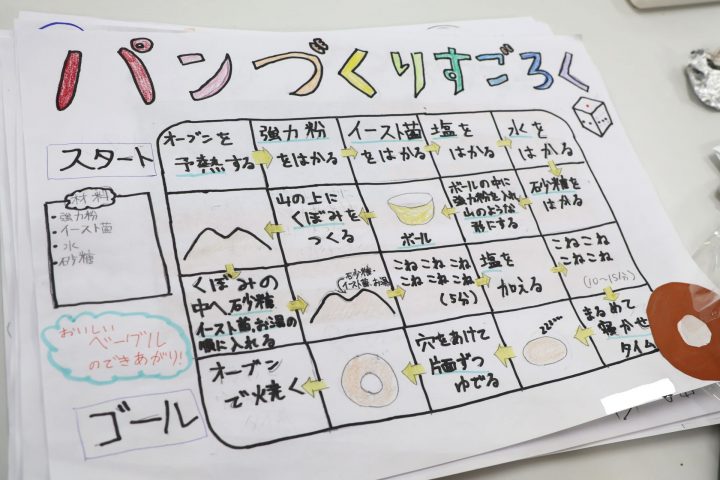 パンづくりすごろく
スタート
オーブンを
予熱する
強力粉
をはかる
イースト菌
をはかる
塩を
はかる
水を
はかる
砂糖を
はかる
ボールの中に
強力粉を入れ
山のような
形にする
ボール
山の上に
くぼみを
つくる
くぼみの
中へ砂糖
イースト菌、お湯の
順に入れる
砂糖・
イースト菌、お湯
こねこねこね
こねこねこね
(5分)
塩を
加える
こねこね
こねこね
(10~15分)
まるめて
寝かせ
タイム
zzz
穴をあけて
片面ずつ
ゆでる
オーブン
で焼く
ゴール
材料
・強力粉
・イースト菌
・水
・砂糖
おいしい
ベーグル
のできあがり!